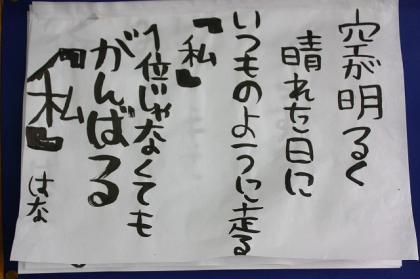 空が明るく
晴れた日に
いつものように走る
『私』
1位じゃなくても
がんばる
『私』
はな